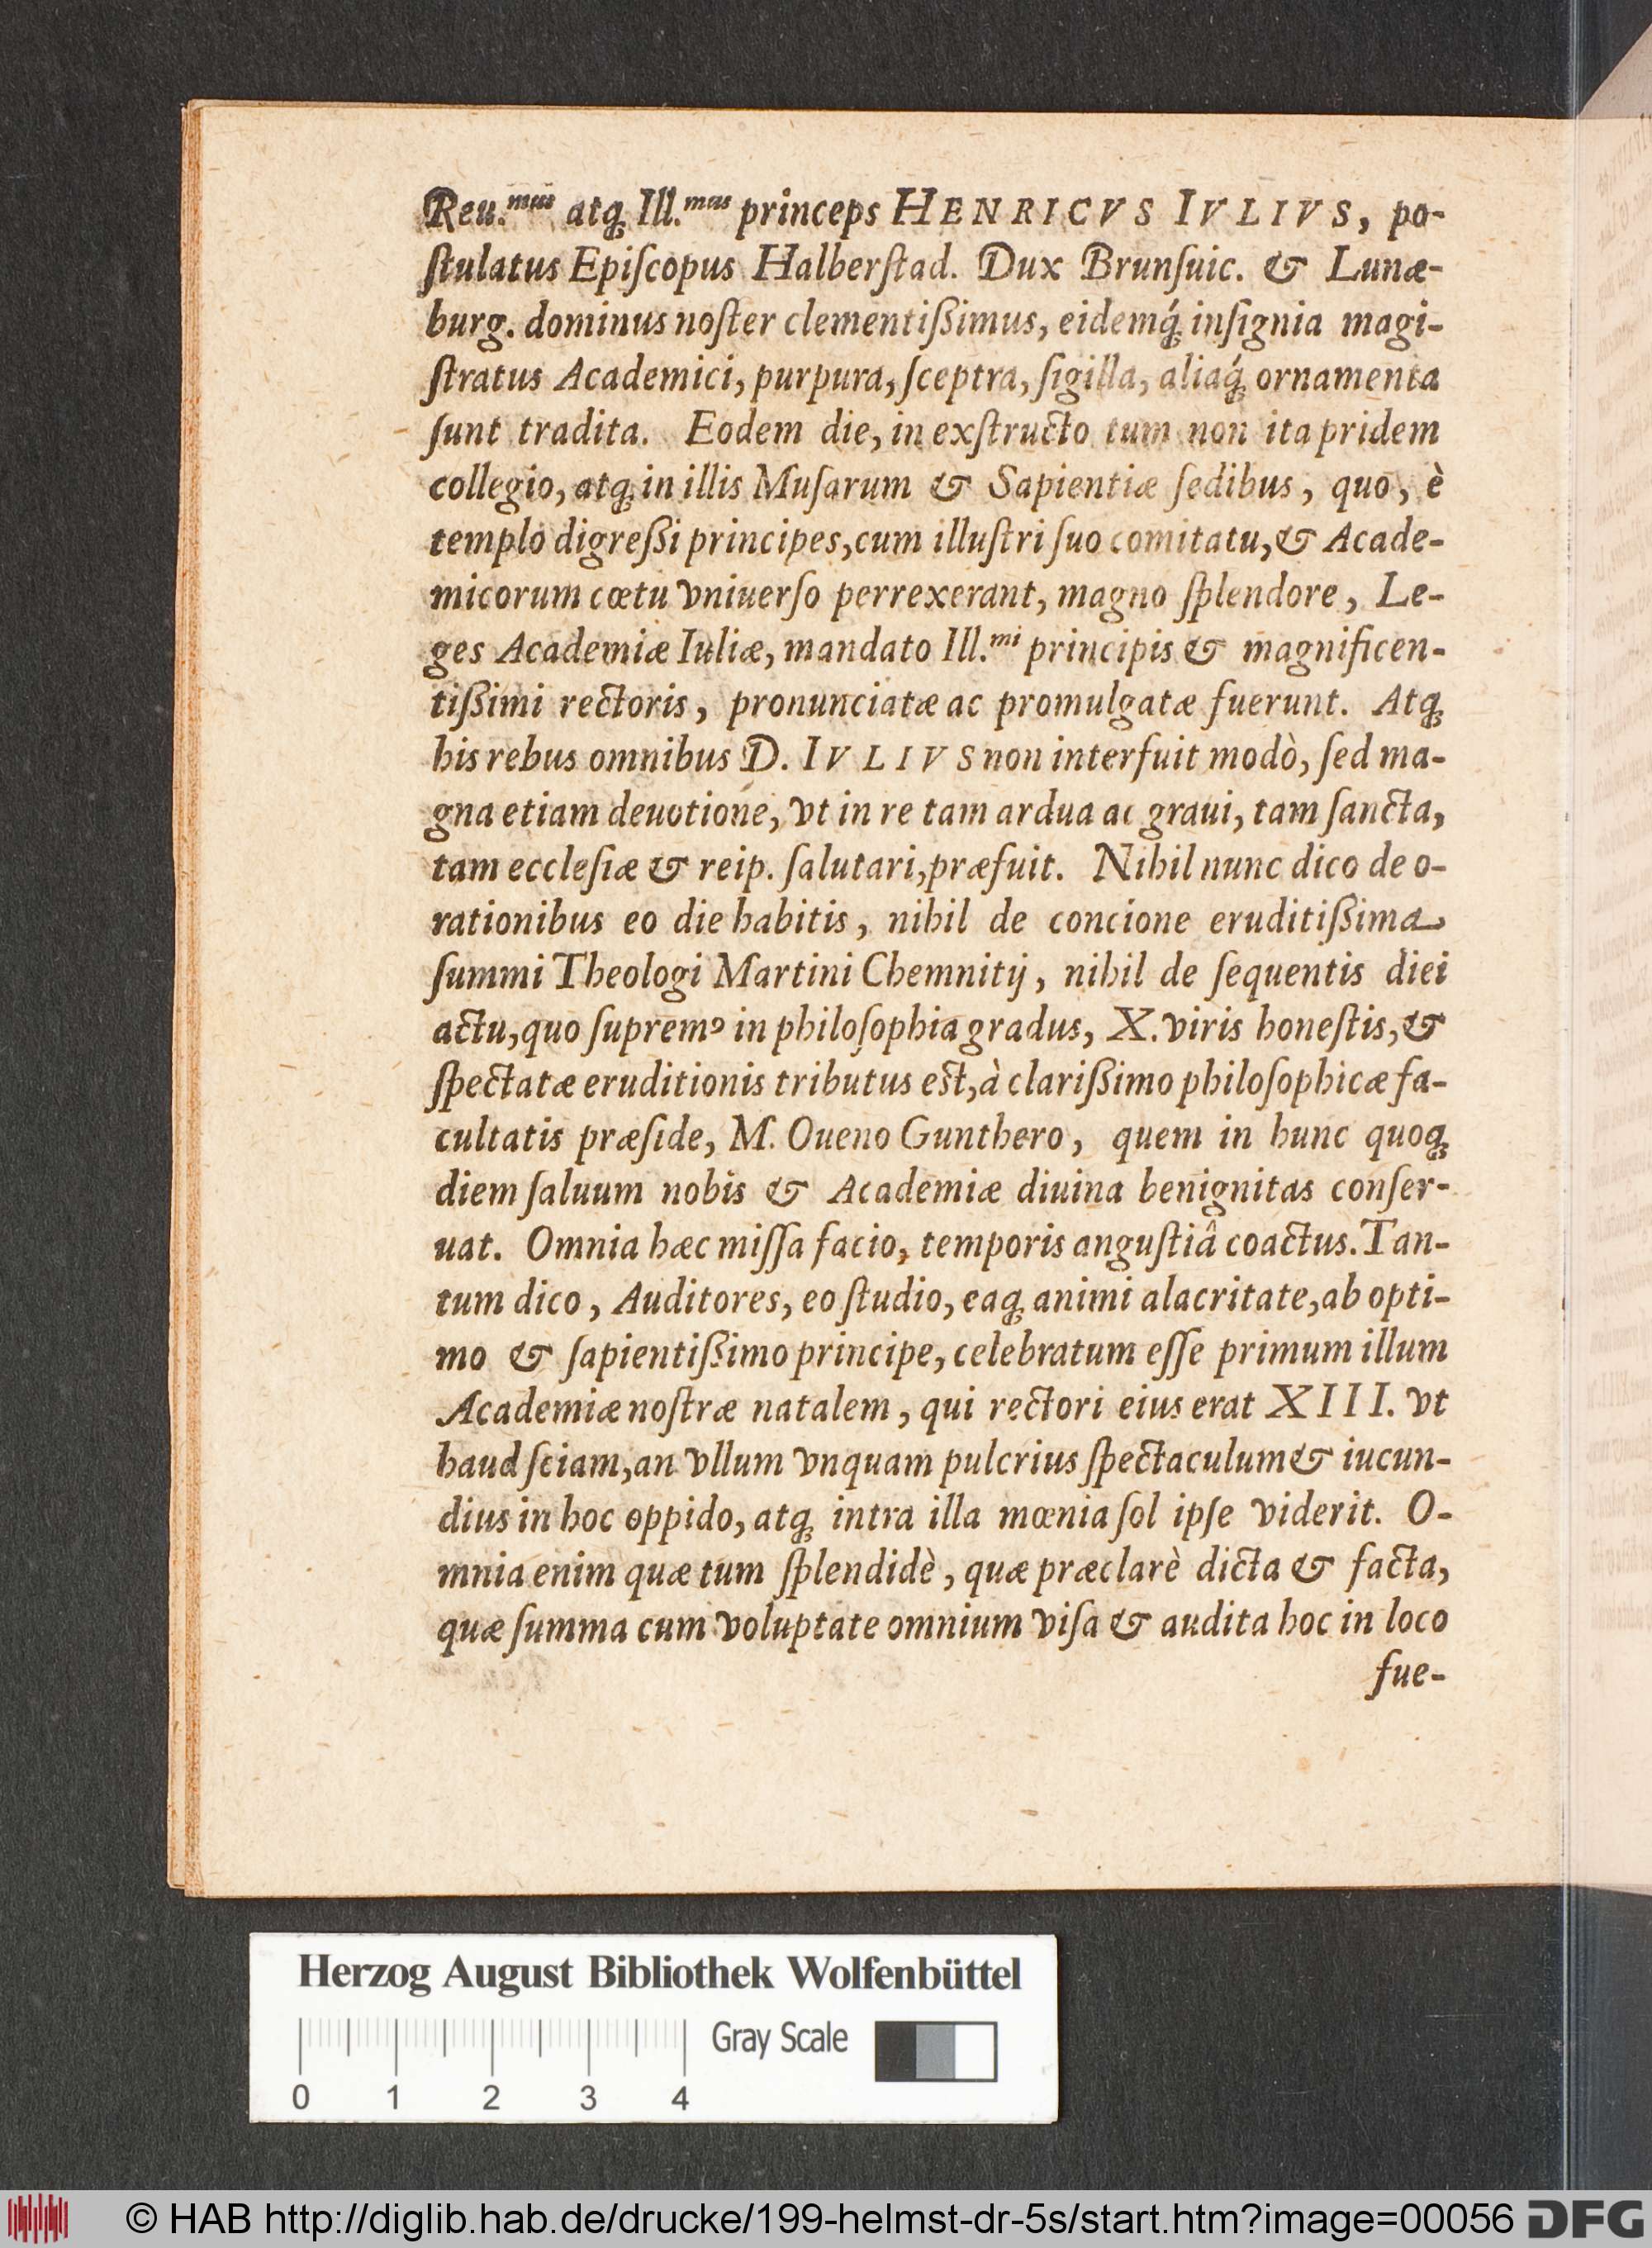 Reu.mus atq; Ill.mus princeps HENRICVS IVLIVS, po-
ſtulatus Epiſcopus Halberſtad. Dux Brunſuic. & Lunæ-
burg. dominus noſter clementiſsimus, eidemq́; inſignia magi-
ſtratus Academici, purpura, ſceptra, ſigilla, aliaq́; ornamenta
ſunt tradita. Eodem die, in exſtructo tum non ita pridem
collegio, atq; in illis Muſarum & Sapientiæ ſedibus, quo, è
templo digreſsi principes, cum illuſtri ſuo comitatu, & Acade-
micorum cœtu vniuerſo perrexerant, magno ſplendore, Le-
ges Academiæ Iuliæ, mandato Ill.mi principis & magnificen-
tiſsimi rectoris, pronunciatæ ac promulgatæ fuerunt. Atq;
his rebus omnibus D. IVLIVS non interfuit modò, ſed ma-
gna etiam deuotione, vt in re tam ardua ac graui, tam ſancta,
tam eccleſiæ & reip. ſalutari, præfuit. Nihil nunc dico de o-
rationibus eo die habitis, nihil de concione eruditiſsima
ſummi Theologi Martini Chemnitij, nihil de ſequentis diei
actu, quo ſupremꝰ in philoſophia gradus, X. viris honeſtis, &
ſpectatæ eruditionis tributus est, à clariſsimo philoſophicæ fa-
cultatis præſide, M. Oueno Gunthero, quem in hunc quoq;
diem ſaluum nobis & Academiæ diuina benignitas conſer-
uat. Omnia hæc miſſa facio, temporis anguſtiâ coactus. Tan-
tum dico, Auditores, eo ſtudio, eaq; animi alacritate, ab opti-
mo & ſapientiſsimo principe, celebratum eſſe primum illum
Academiæ noſtræ natalem, qui rectori eius erat XIII. vt
haud ſciam, an vllum vnquam pulcrius ſpectaculum & iucun-
dius in hoc oppido, atq; intra illa mœnia ſol ipſe viderit. O-
mnia enim quæ tum ſplendidè, quæ præclarè dicta & facta,
quæ ſumma cum voluptate omnium viſa & audita hoc in loco
fue-
Herzog August Bibliothek Wolfenbüttel
Gray Scale
0 1 2 3 4
© HAB http://diglib.hab.de/drucke/199-helmst-dr-5s/start.htm?image=00056 DFG